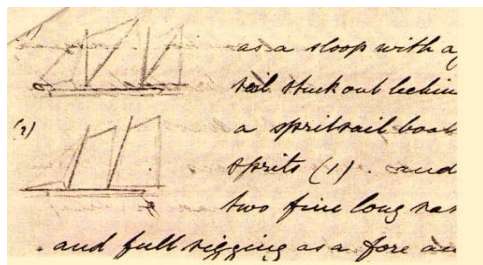 as a sloop with a
sail stuck out behin
(2)
a spritsail boat
sprits (1). and
two fine long
and full rigging as a fore an